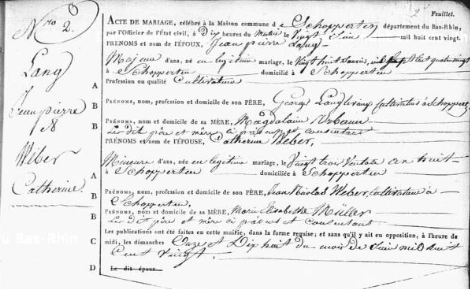 Nro 2.
Lang
Jean pierre
&
Wéber
Catherine
Feuillet.
ACTE DE MARIAGE, célébré à la Maison commune d e Schopperten département du Bas-Rhin,
par l'Officier de l'état civil, à Dix heures du Matin le Vingt Juin mil huit cent vingt.
PRÉNOMS et nom de l'ÉPOUX, Jean pierre Lang
Majeur d'ans, né en légitime mariage, le Vingt huit
à Schopperten domicilié à Schopperten
Profession ou qualité Cultivateur
A
PRÉNOMS, nom, profession et domicile de son PÈRE, George Lang Cultivateur à Schopperten
B
PRÉNOMS, nom et domicile de sa MÈRE, Magdalaine Urbann
Les dit père et mère à présents et consentant
PRÉNOMS et nom d'ÉPOUSE, Catherine Wéber,
Mineure d'ans, née en légitime mariage, le Vingt trois Ventose an huit
à Schopperten domiciliée à Schopperten
A
PRÉNOMS, nom, profession et domicile de son PÈRE, Jean Nicolas Weber, Cultivateur à
Schopperten,
B
PRÉNOMS, nom et domicile de sa MÈRE, Marie Elisabethe Müller
Les dit père et mère à présent et consentant
C
Les publications ont été faites en cette mairie, dans la forme requise; et sans qu'il y ait eu opposition, à l'heure de
midi, les dimanches Onze et Dix huit du mois de Juin mil huit
Cent Vingt.
D
Le dit époux
u Bas-Rhin